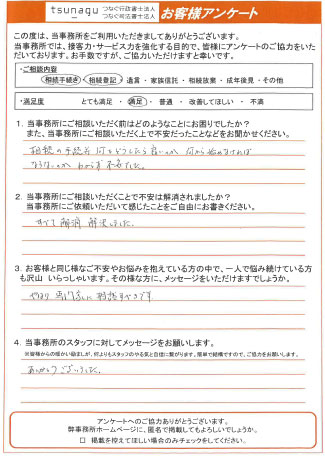 tsunagu つなぐ行政書士法人 つなぐ司法書士法人 お客様アンケート
この度は、当事務所をご利用いただきましてありがとうございます。
当事務所では、接客力・サービス力を強化する目的で、皆様にアンケートのご協力をいた
だいております。お手数ですが、ご協力いただけますと幸いです。
・ご相談内容
相続手続き ・ 相続登記 ・ 遺言 ・ 家族信託 ・ 相続放棄 ・ 成年後見 ・ その他
・満足度 とても満足 ・ 満足 ・ 普通 ・ 改善してほしい ・ 不満
1. 当事務所にご相談いただく前はどのようなことにお困りでしたか?
また、当事務所にご相談いただく上で不安だったことなどをお聞かせください。
相続の手続き 何をどうしたら良いのか 何から始めなければ
ならないのか わからず 不安でした。
2. 当事務所にご相談いただくことで不安は解消されましたか?
当事務所にご依頼いただいて感じたことをご自由にお書きください。
すべて解消 解決しました。
3. お客様と同じ様なご不安やお悩みを抱えている方の中で、一人で悩み続けている方
も沢山 いらっしゃいます。その様な方に、メッセージをいただけますでしょうか。
やはり 専門家に 相談すべきです
4. 当事務所のスタッフに対してメッセージをお願いします。
※皆様からの暖かい励ましが、何よりもスタッフのやる気と自信に繋がります。簡単で結構ですので、ご協力をお願いします。
ありがとうございました。
アンケートへのご協力ありがとうございます。
弊事務所ホームページに、匿名で掲載してもよろしいでしょうか。
□ 掲載を控えてほしい場合のみチェックをしてください。